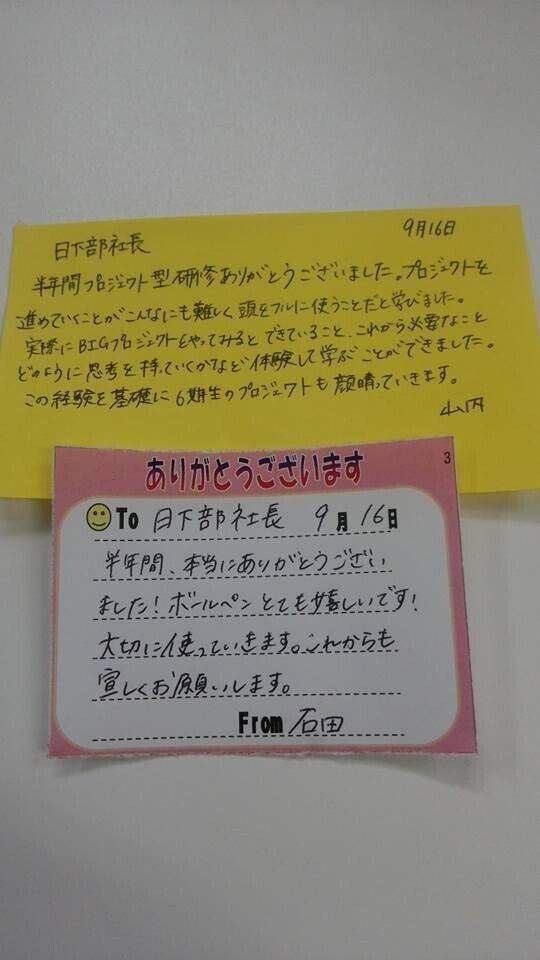 日下部社長 9月16日
半年間プロジェクト型研修ありがとうございました。プロジェクトを
進めていくことがこんなにも難しく頭をフルに使うことだと学びました。
実際にBIGプロジェクトをやってみるとできていること、これから必要なこと
どのように思考を持っていくかなど体験して学ぶことができました。
この経験を基礎に6期生のプロジェクトも顔晴っていきます。
山内
ありがとうございます 3
To 日下部社長 9月16日
半年間、本当にありがとうござい
ました!ボールペンとても嬉しいです!
大切に使っていきます。これからも
宜しくお願いします。
From 石田